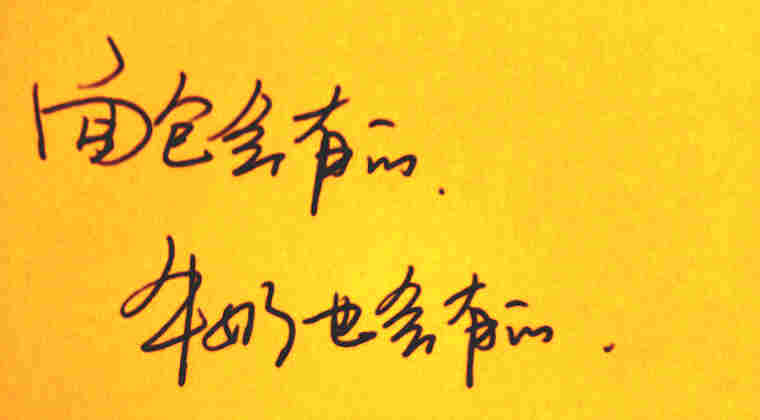 面包会有的.
牛奶也会有的.